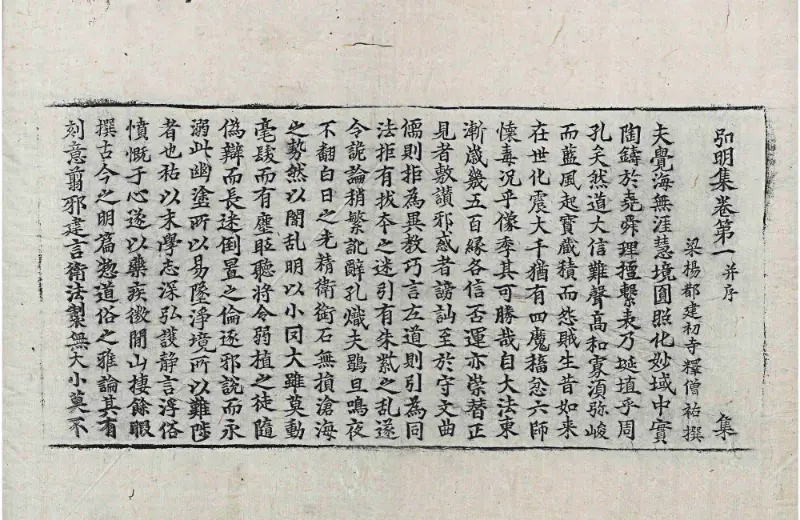 弘明集卷第一 并序 集
梁楊都建初寺釋僧祐撰
夫覺海無涯慧境圓照化妙域中實
陶鑄於堯舜理擅繫表乃埏埴乎周
孔矣然道大信難聲高和寡須弥峻
而藍風起寶藏積而怨賊生昔如来
在世化震大千猶有四魔穡忿六師
懐毒况乎像季其可勝哉自大法東
漸歲幾五百縁各信否運亦崇替正
見者敷讃邪惑者謗訕至於守文曲
儒則拒為異教巧言左道則引為同
法拒有拔夲之迷引有朱紫之乱遂
令詭論稍繁訛辭孔熾夫鶡旦鳴夜
不翻白日之光精衛銜石無損滄海
之勢然以闇乱明以小罔大雖莫動
毫髮而有塵眡聽将令弱植之徒隨
偽辯而長迷倒置之倫逐邪說而永
溺此幽塗所以易墜淨境所以難陟
者也祐以末學志深弘護静言浮俗
憤慨于心遂以藥疾微間山棲餘暇
撰古今之明篇揔道俗之雅論其有
刻意翦邪建言衛法製無大小莫不